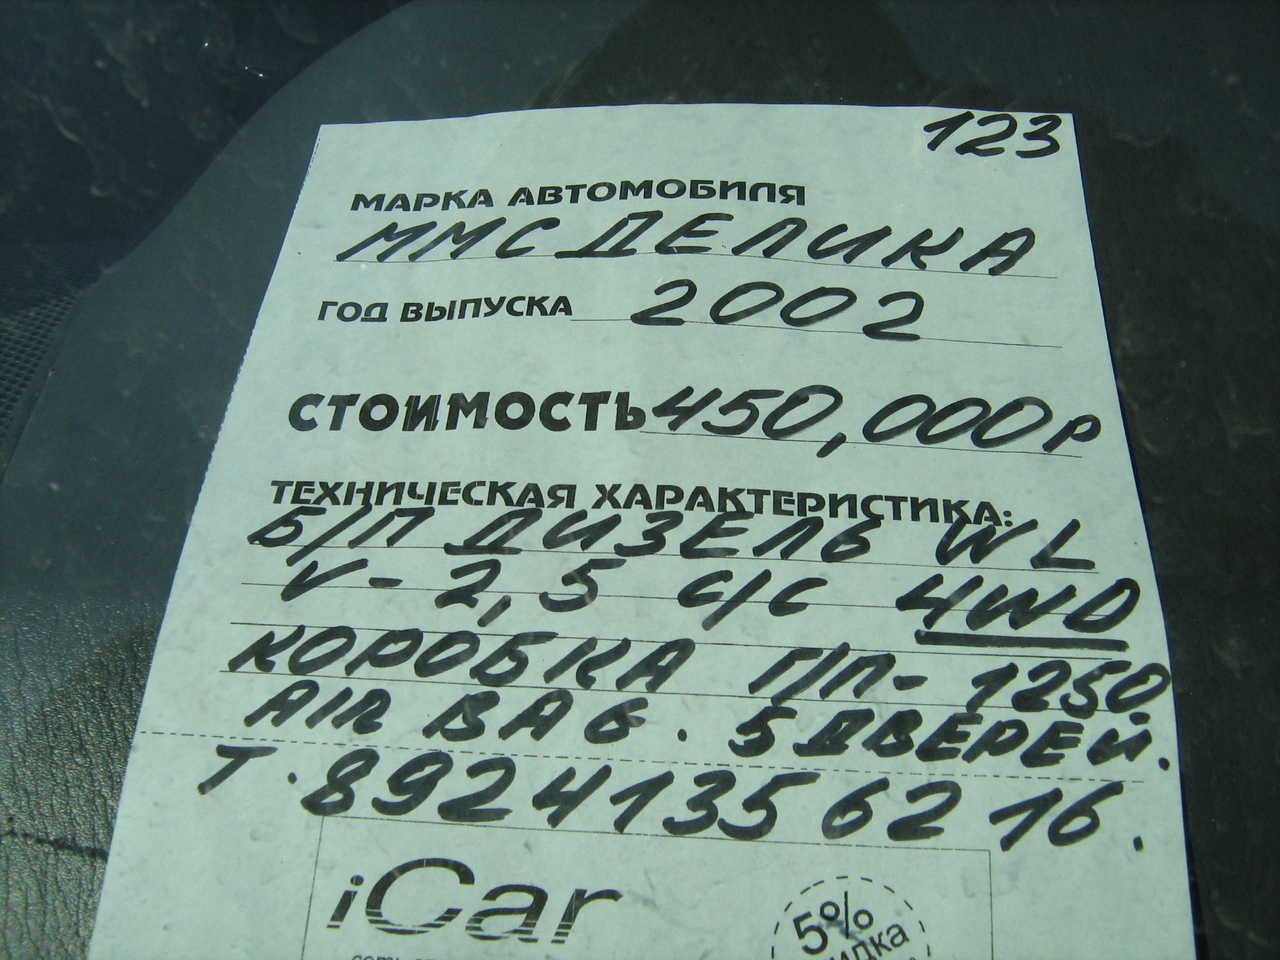 123
МАРКА АВТОМОБИЛЯ
ММС ДЕЛИКА
ГОД ВЫПУСКА 2002
СТОИМОСТЬ 450,000р
ТЕХНИЧЕСКАЯ ХАРАКТЕРИСТИКА:
Б/П ДИЗЕЛЬ WL
V-2,5 С/С 4WD
КОРОБКА Г/П-1250
AIR BAG. 5 ДВЕРЕЙ.
Т.89241356216.
iCar
5%